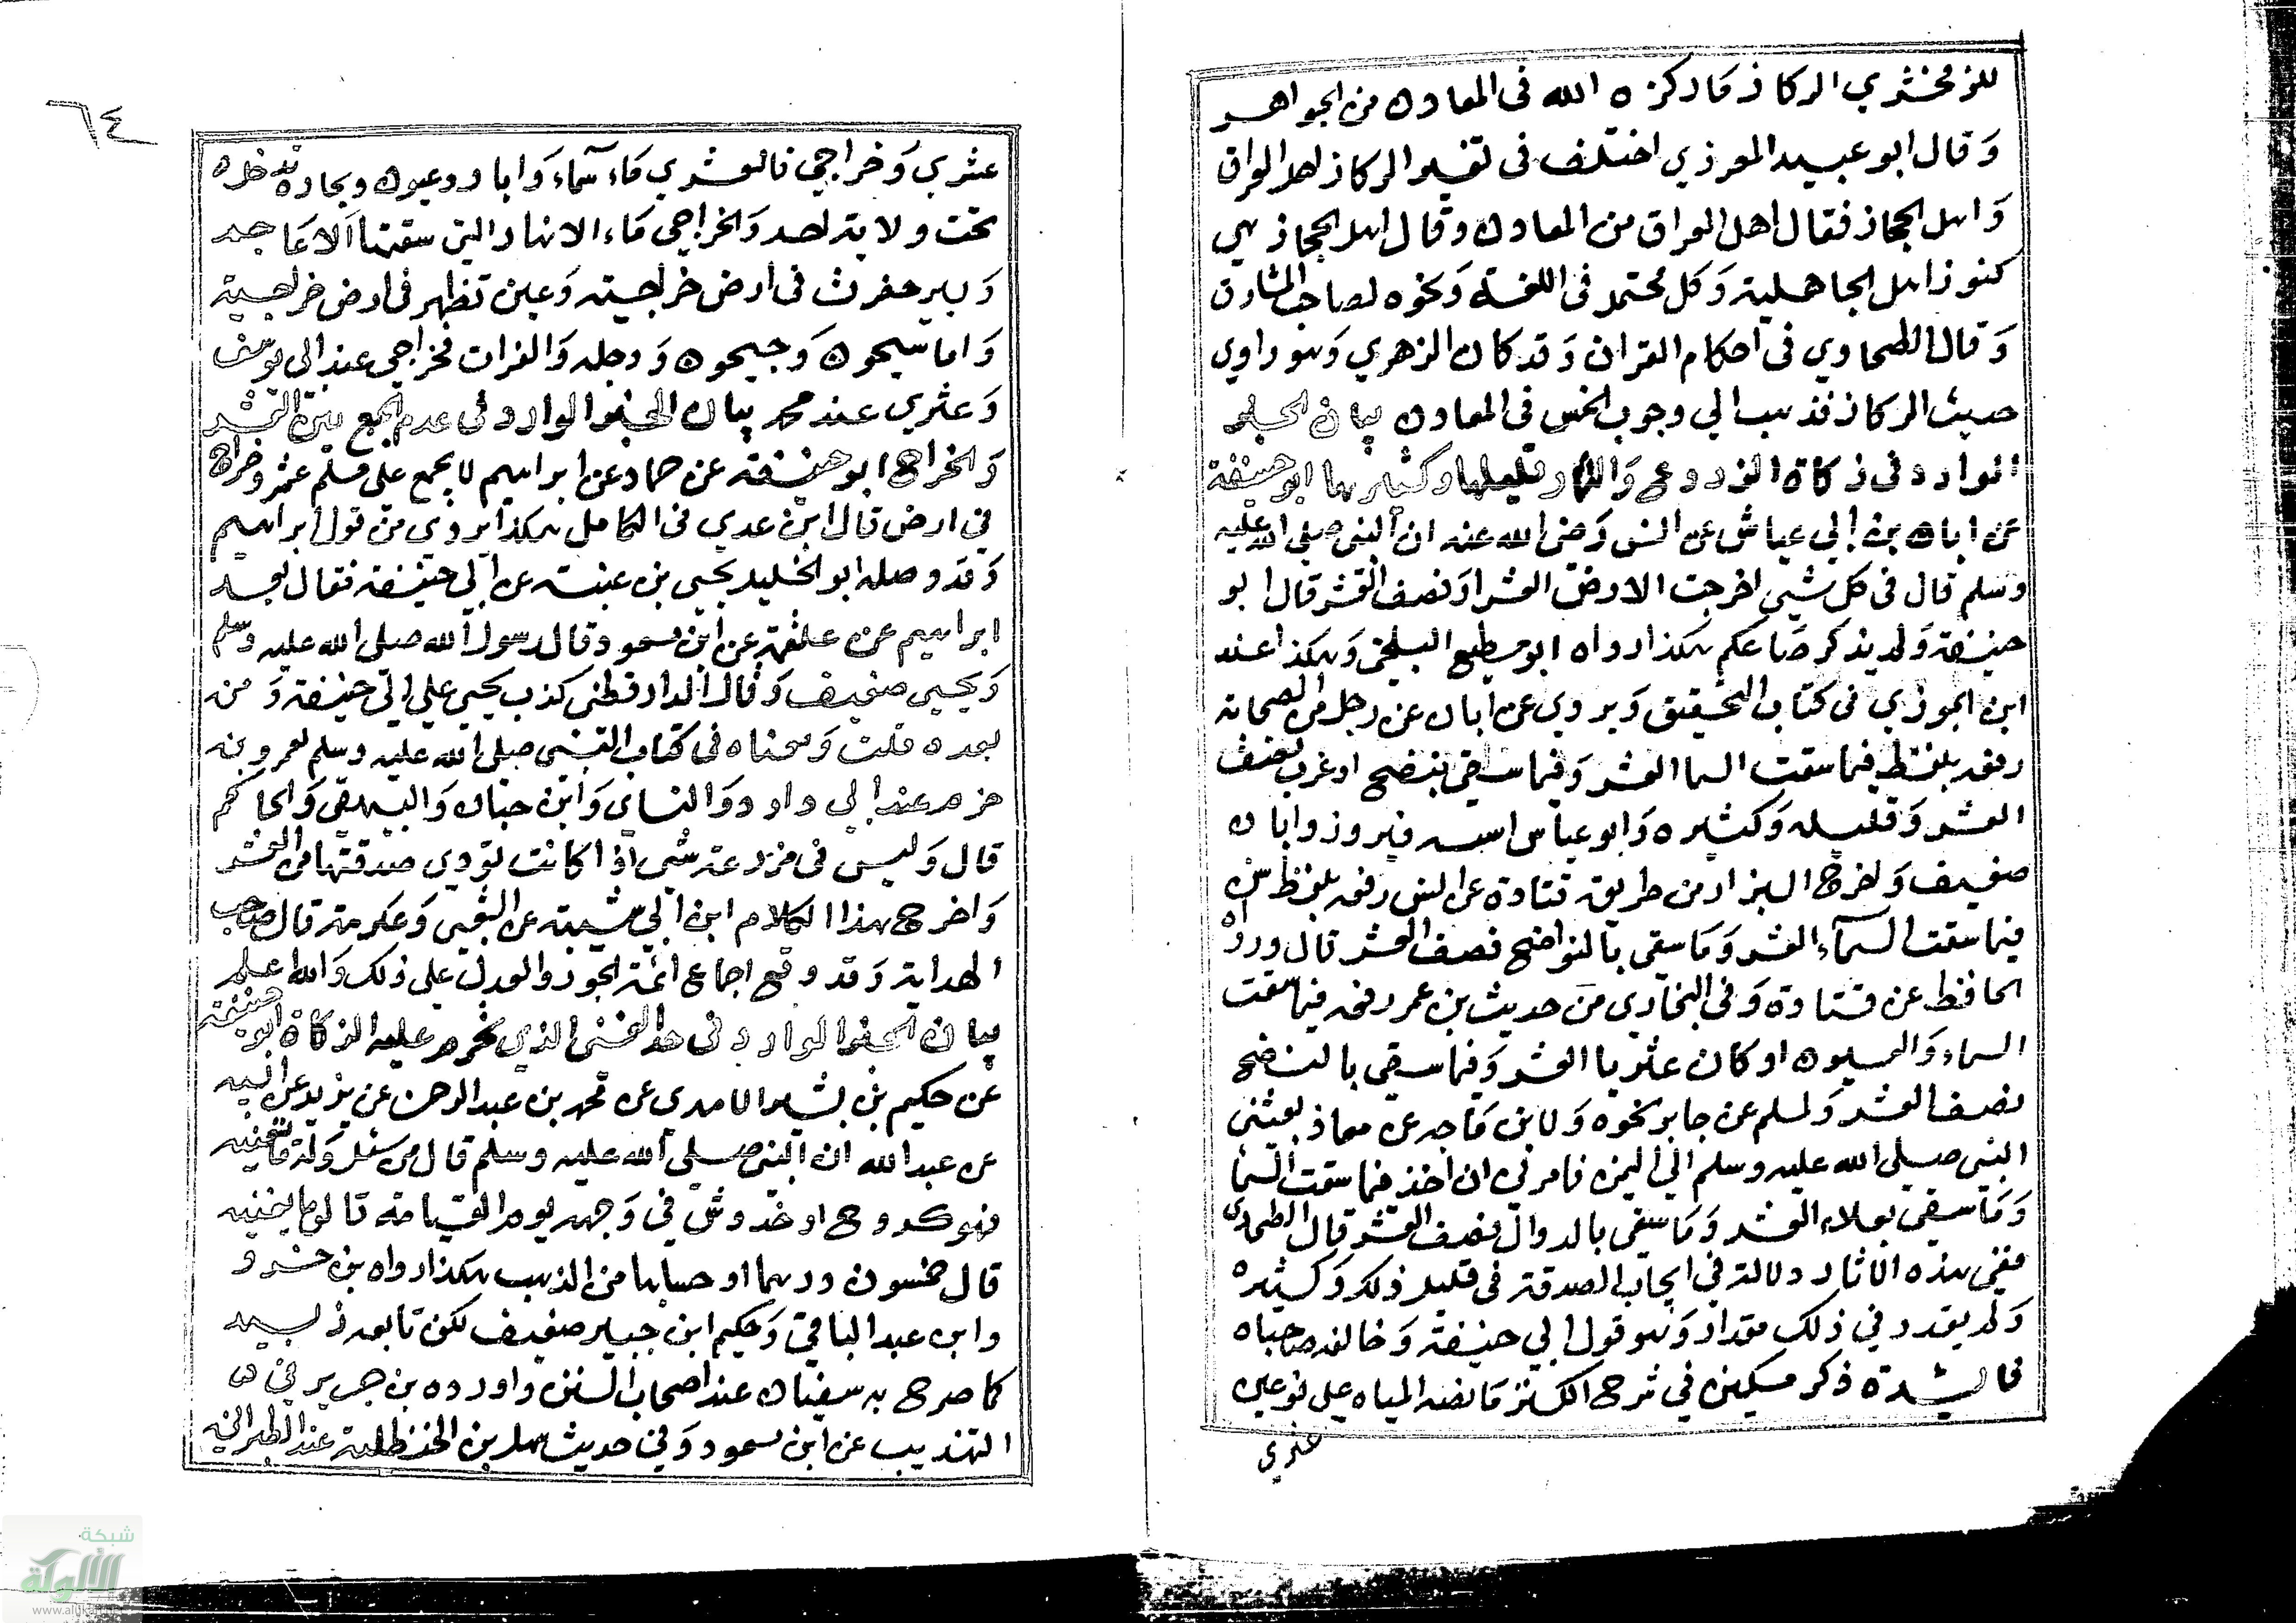 للزمخشري الركاز ما ركزه الله في المعادن من الجواهر
وقال ابو عبيد الهروي اختلف في تفسير الركاز اهل العراق
واهل الحجاز فقال اهل العراق من المعادن وقال اهل الحجاز هي
كنوز اهل الجاهلية وكل محتمل في اللغة ونحوه لصاحب المشارق
وقال الطحاوي في احكام القران وقد كان الزهري وهو راوي
حديث الركاز فذهب الي وجوب الخمس في المعادن بيان الخبر
الوارد في زكاة الزروع والثمار قليلها وكثيرها ابو حنيفة
عن ابان بن ابي عياش عن انس رضي الله عنه ان النبي صلى الله عليه
وسلم قال في كل شيي اخرجت الارض العشر او نصف العشر قال ابو
حنيفة ولم يذكر صاعكم هكذا رواه ابو مطيع البلخي وهكذا عند
ابن الجوزي في كتاب التحقيق ويروي عن ابان عن رجل من الصحابة
رفعه بلفظ فيما سقت السما العشر وفيما سقي بنضح او غرب نصف
العشر وقليله وكثيره وابو عياش اسمه فيروز وابان
ضعيف واخرج البزار من طريق قتادة عن انس رفعه بلفظ سن
فيما سقت السماء العشر وما سقي بالنواضح نصف العشر قال ورواه
الحافظ عن قتادة وفي البخاري من حديث بن عمر رفعه فيما سقت
السماء والعيون او كان عثريا العشر وفيما سقي بالنضح
نصف العشر ولمسلم عن جابر نحوه ولابن ماجه عن معاذ بعثني
النبي صلى الله عليه وسلم الي اليمن فامرني ان اخذ فيما سقت السما
وما سقي بعلاء العشر وما سقي بالدوال نصف العشر قال الطحاوي
ففي هذه الاثار دلالة في ايجاب الصدقة في قليل ذلك وكثيره
ولم يقدر في ذلك مقدار وهو قول ابي حنيفة وخالفه صاحباه
فايدة ذكر مسكين في شرح الكنز ما نصه المياه على نوعين
عثري
٦٤
عثري وخراجي فالعشري ماء سماء وابار وعيون وبحار لا تدخل
تحت ولاية احد والخراجي ماء الانهار التي سقتها الاعاجم
وبير حفرت في ارض خراجية وعين تظهر في ارض خراجية
واما سيحون وجيحون ودجله والفرات فخراجي عند ابي يوسف
وعثري عند محمد بيان الخبر الوارد في عدم الجمع بين العشر
والخراج ابو حنيفة عن حماد عن ابراهيم لا يجمع على مسلم عشر وخراج
في ارض قال ابن عدي في الكامل هكذا يروي من قول ابراهيم
وقد وصله ابو الخليد يحيى بن عنبسة عن ابي حنيفة فقال بعد
ابراهيم عن علقمة عن ابن مسعود وقال رسول الله صلى الله عليه وسلم
ويحيى ضعيف وقال الدارقطني كذب يحيى علي ابي حنيفة ومن
بعده قلت ومعناه في كتاب النبي صلى الله عليه وسلم لعمرو بن
حزم عند ابي داود والنساي وابن حبان والبيهقي والحاكم
قال وليس في مزرعة شي اذا كانت تؤدي صدقتها من العشر
واخرج هذا الكلام ابن ابي شيبة عن الشعبي وعكرمة قال صاحب
الهداية وقد وقع اجماع ائمة الجور والعدل على ذلك والله اعلم
بيان الخبر الوارد في حد الغنى الذي تحرم عليه الزكاة ابو حنيفة
عن حكيم بن بشير الامدي عن محمد بن عبد الرحمن عن يزيد عن ابيه
عن عبد الله ان النبي صلى الله عليه وسلم قال من سئل وله ما يغنيه
فهو كدوح او خدوش في وجهه يوم القيامة قالوا ما يغنيه
قال خمسون درهما او حسابها من الذهب هكذا رواه بن خسرو
وابن عبد الباقي وحكيم ابن جبير ضعيف لكن تابعه زبيد
كما صرح به سفيان عند اصحاب السنن واورده بن جرير في
التهذيب عن ابن مسعود وفي حديث سهل بن الحنظلية عند الطبراني
شبكة
الألوكة